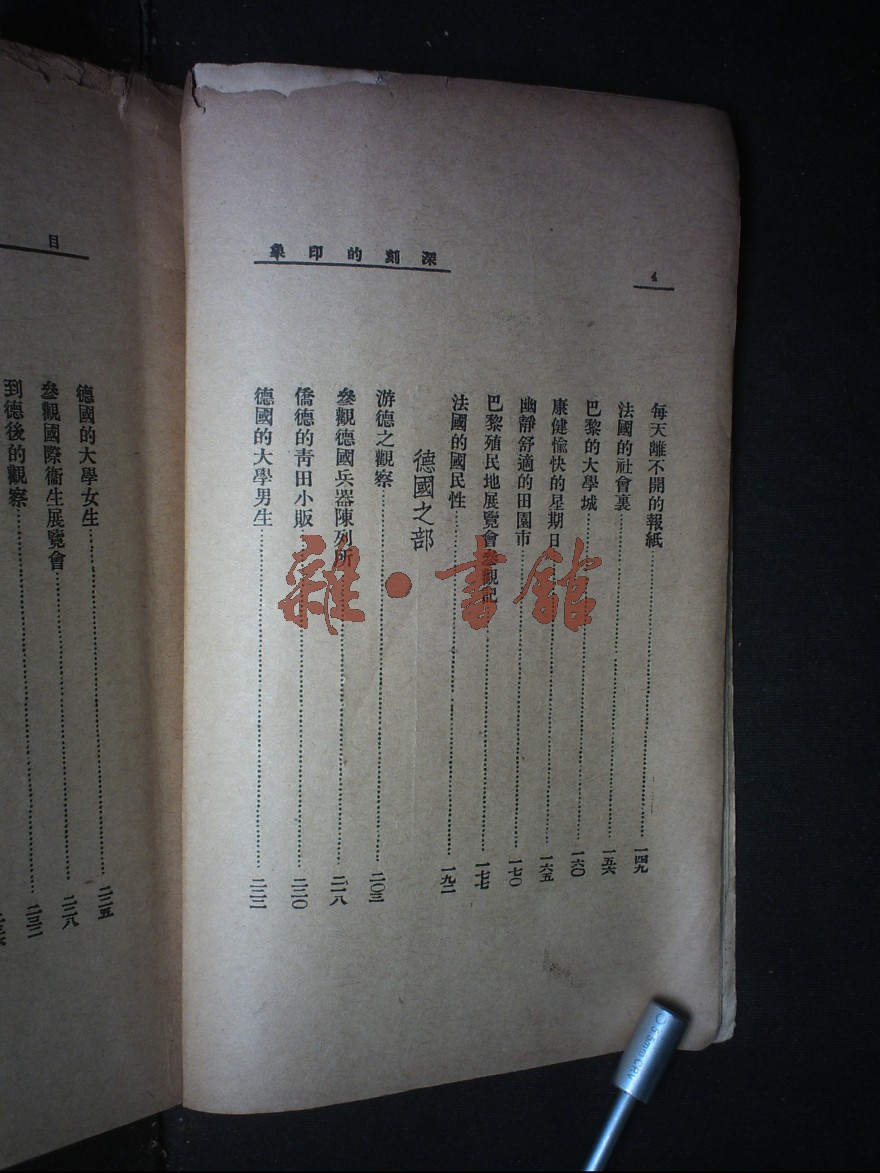 深刻的印象
4
每天離不開的報紙……一四九
法國的社會裏……一五六
巴黎的大學城……一六〇
康健愉快的星期日……一六五
幽靜舒適的田園市……一七〇
巴黎殖民地展覽會參觀記……一七七
法國的國民性……一九二
德國之部
游德之觀察……二〇三
參觀德國兵器陳列所……二一八
僑德的青田小販……二二〇
德國的大學男生……二二二
目
德國的大學女生……二二五
參觀國際衞生展覽會……二二八
到德後的觀察……二三二
雜·書館
5.5mm CRV